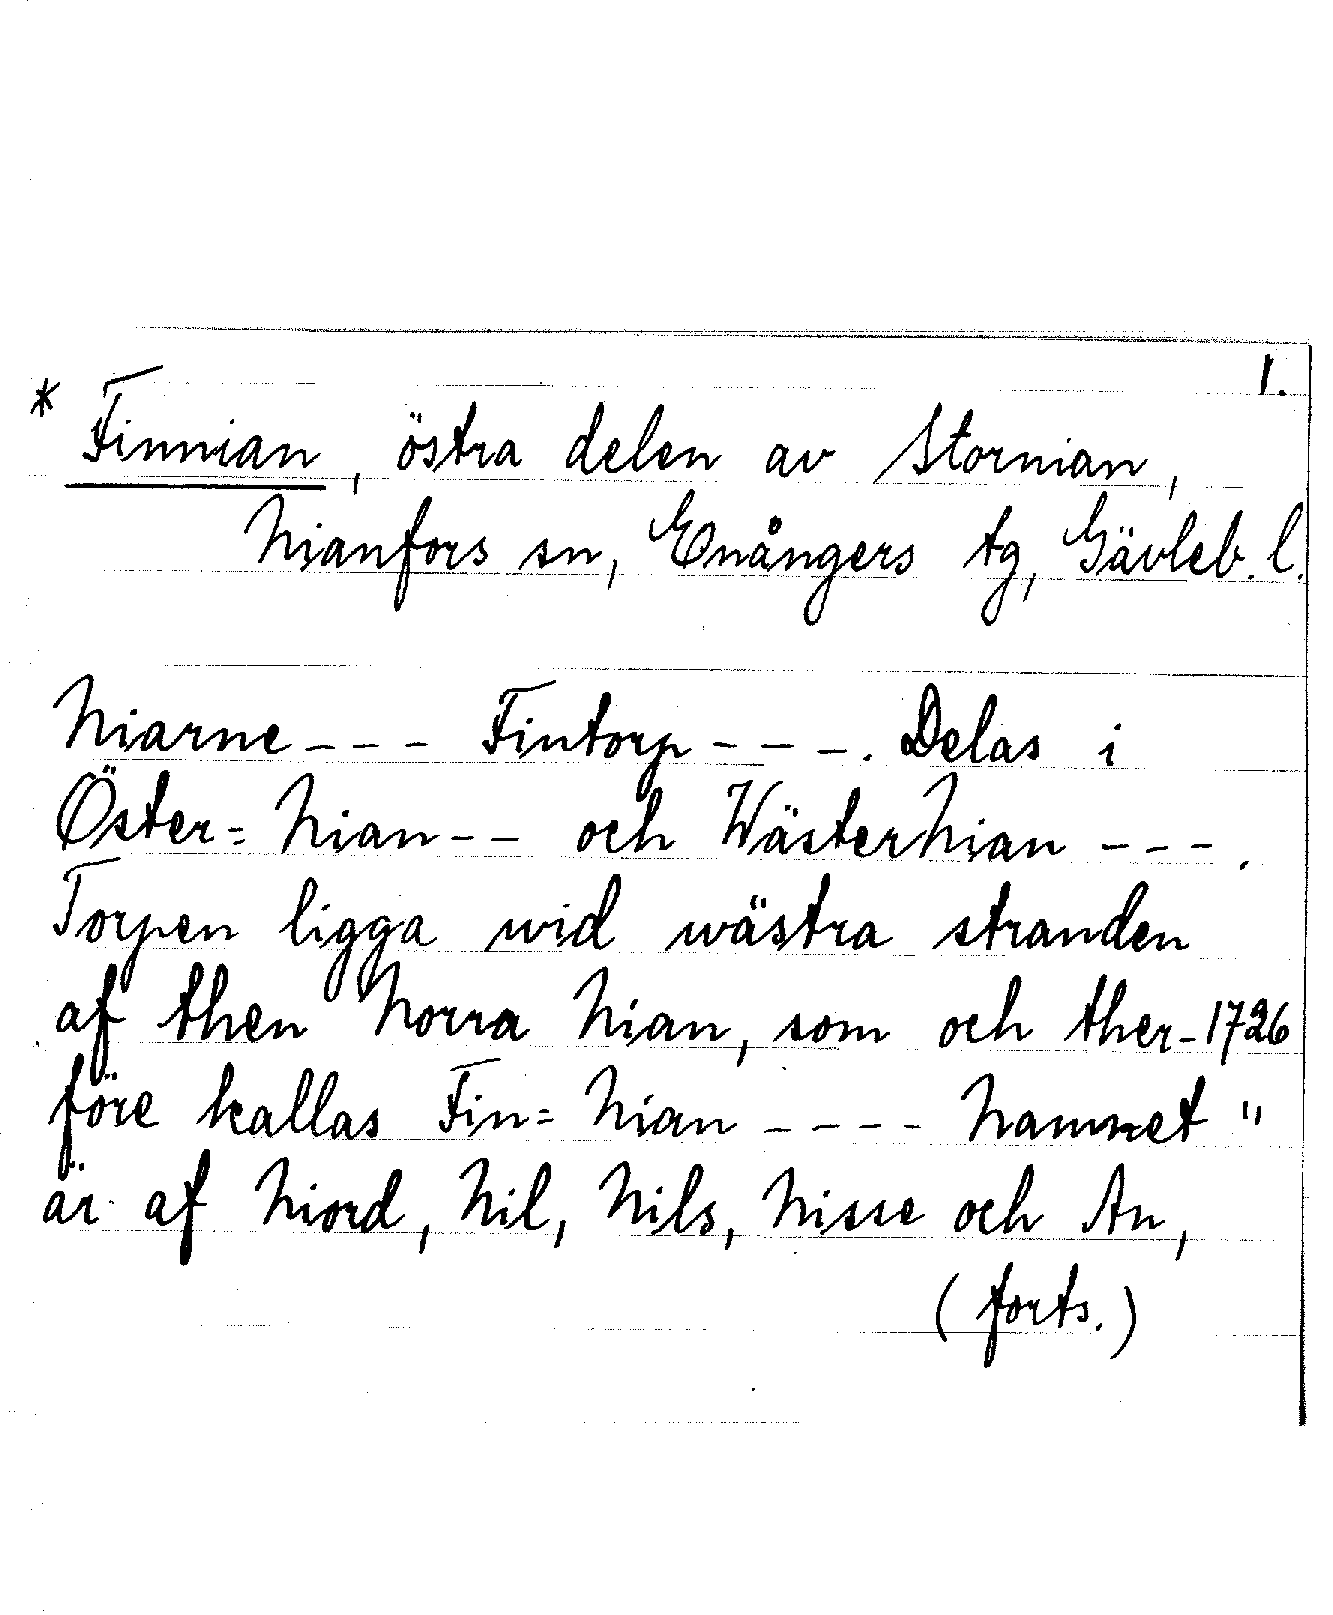 1.
* Finnian, östra delen av Stornian,
Nianfors sn, Enångers tg, Gävleb. l.
Niarne --- Fintorp ---. Delas i
Öster= Nian -- och WästerNian ---.
Torpen ligga wid wästra stranden
af then Norra Nian, som och ther- 1726
före kallas Fin= Nian ---- Namnet "
är af Niord, Nil, Nils, Nisse och An,
(forts.)